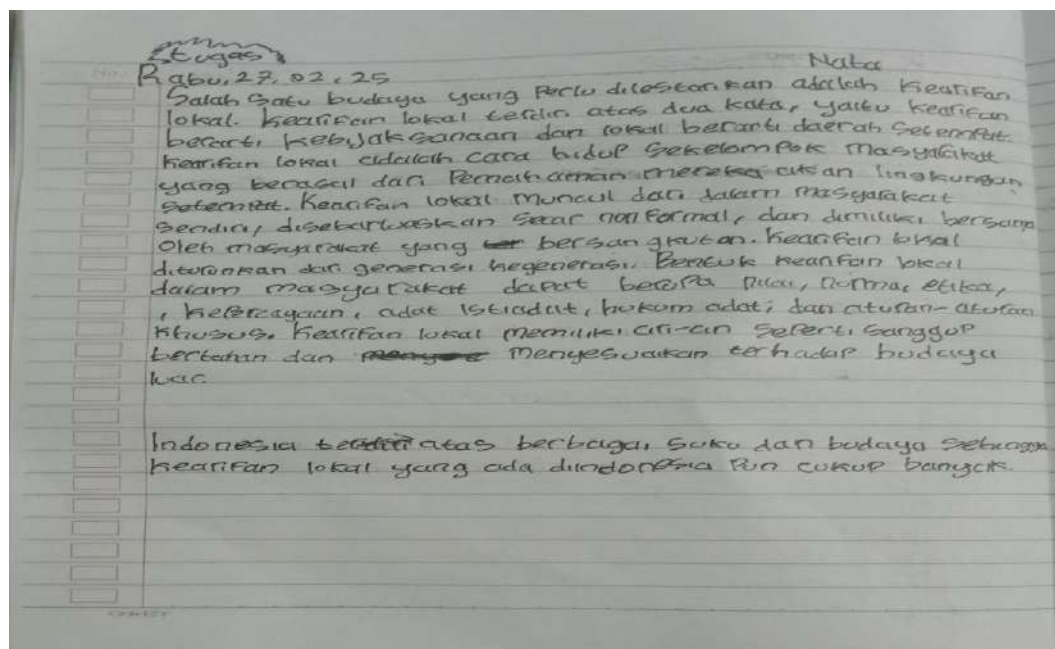 tugas
Nata
Rabu, 27, 02, 25
Salah Satu budaya yang Perlu dilestarikan adalah Kearifan
lokal. kearifan lokal terdiri atas dua kata, yaitu kearifan
berarti Kebijaksanaan dan lokal berarti daerah Setempat.
kearifan lokal adalah cara hidup Sekelompok masyarakat
yang berasal dari Pemahaman mereka akan lingkungan
Setempat. Kearifan lokal Muncul dari dalam masyarakat
Sendiri, disebarluaskan secar non Formal, dan dimiliki bersama
Oleh masyarakat yang bersangkutan. Kearifan lokal
diturunkan dari generasi kegenerasi. Bentuk kearifan lokal
dalam masyarakat dapat berupa nilai, norma, etika,
, Kepercayaan, adat istiadat, hukum adat, dan aturan-aturan
Khusus. Kearifan lokal memiliki ciri-ciri Seperti Sanggup
bertahan dan menyesuaikan terhadap budaya
luar
Indonesia terdiri atas berbagai Suku dan budaya Sehingga
Kearifan lokal yang ada diindonesia Pun cukup banyak.